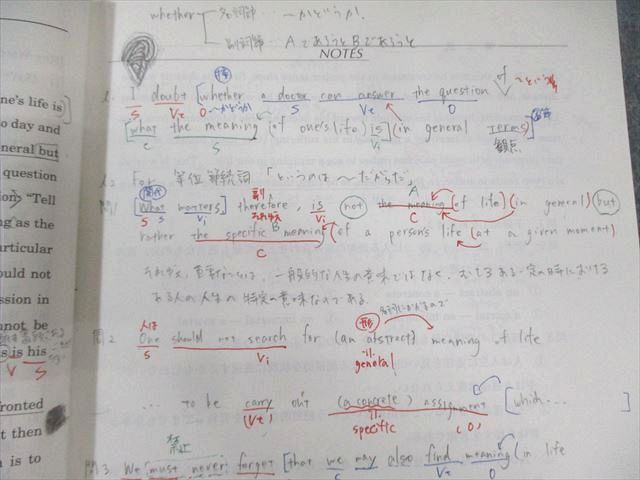 whether 名詞節 〜かどうか.
副詞節 AであろうとBであろうと
NOTES
I doubt [whether a doctor can answer the question
S Vt O 〜かどうか S Vt O
of 〜という
[what the meaning (of one's life) is] (in general terms)]
C S Vi 観点
ne's life is
o day and
neral but
question
"Tell
ng as the
articular
ould not
ssion in
nnot be
s is his
V S
ronted
t then
is to
For 等位接続詞 「というのは〜だからだ」
問1 [What matters] therefore, is not the meaning (of life) (in general) but
S S Vi 副 Vi A C
rather the specific meaning (of a person's life (at a given moment)
B C
それゆえ, 重要なのは, 一般的な人生の意味ではなく, むしろある一定の時における
ある人の人生の特定の意味なのである.
問2 One should not search for (an abstract) meaning of life
人は S Vi 形 general
... to be carry out (a concrete) assignment [which....]
(Vt) specific (O)
問3 We must never forget [that we may also find meaning (in life
禁止 S Vt O